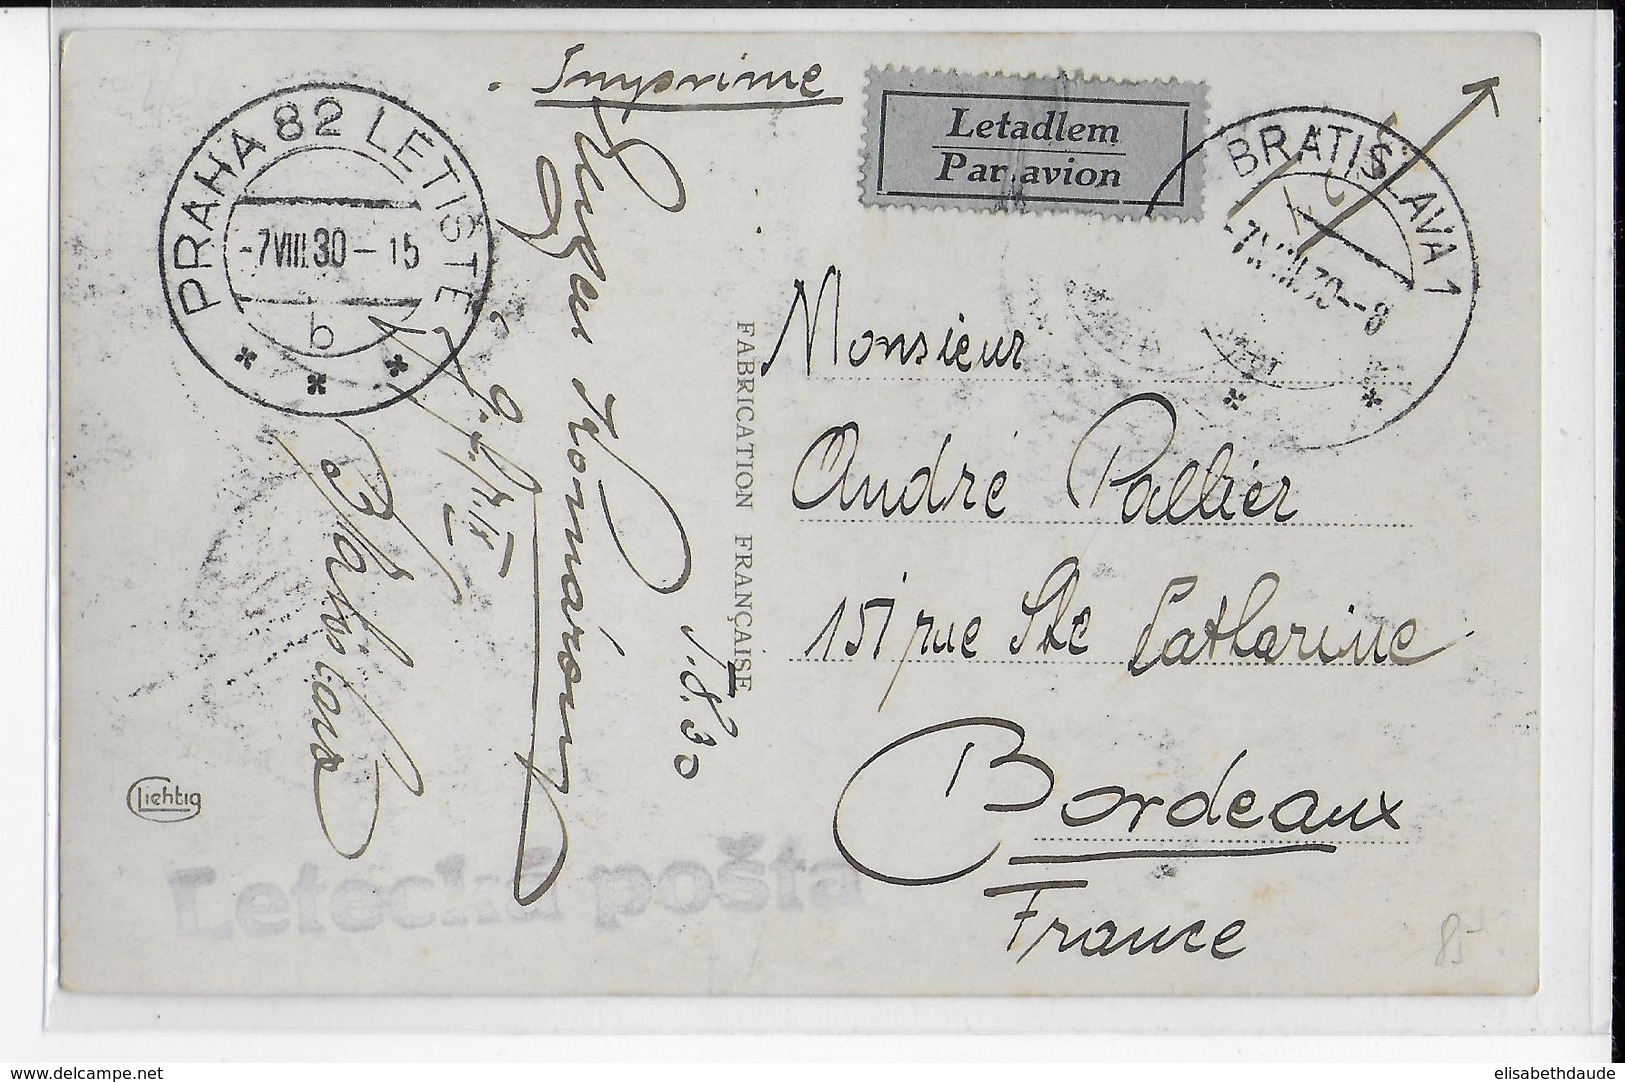 Imprimé
Letadlem
Par avion
PRAHA 82 LETIŠTĚ
-7 VIII.30 - 15
b
BRATISLAVA 1
-7.VIII.30--8
Monsieur
André Pallier
151 rue Ste Catharine
Bordeaux
France
FABRICATION FRANÇAISE
Komárom
Bratislava
Liehtig
Letecká pošta
85
www.delcampe.net
elisabethdaude